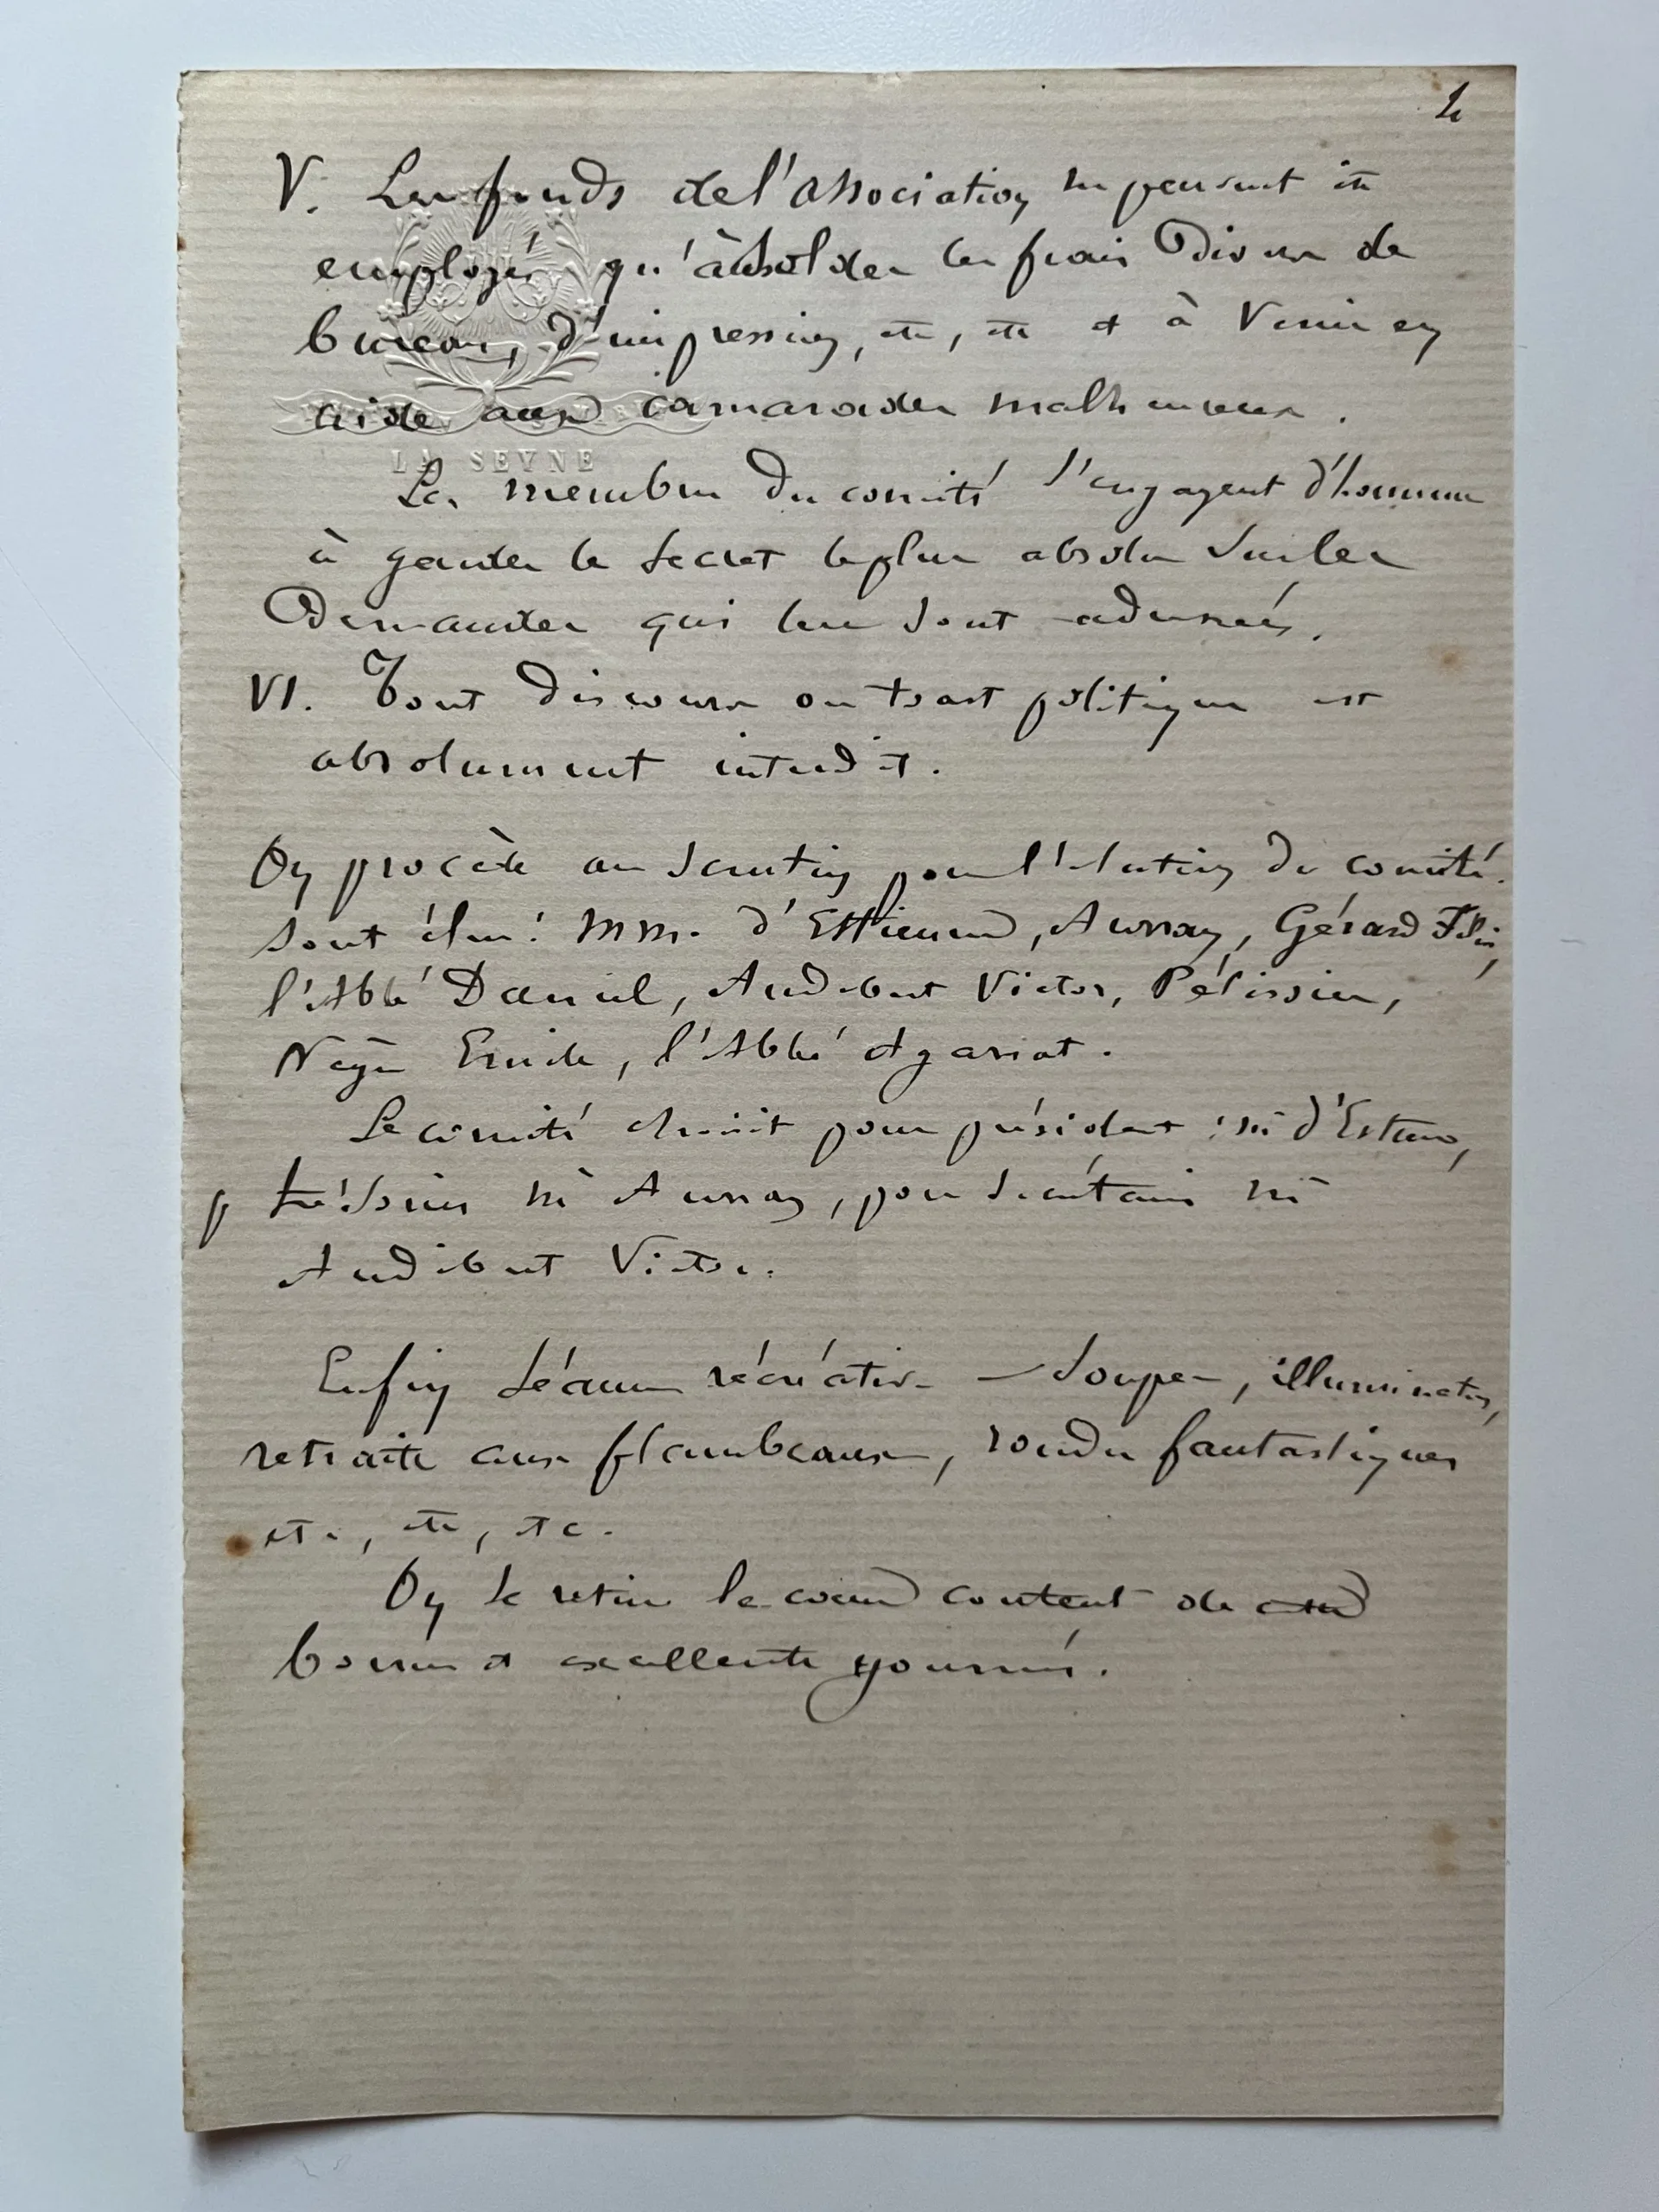 2
V. Les fonds de l'association ne peuvent être
employés qu'à solder les frais divers de
bureau, d'impression, etc, etc et à venir en
aide aux camarades malheureux.
LA SEYNE
Les membres du comité s'engagent d'honneur
à garder le secret le plus absolu sur les
demandes qui leur sont adressées.
VI. Tout discours ou toast politique est
absolument interdit.
On procède au scrutin pour l'élection du comité.
Sont élus: MM. d'Estienne, Aunay, Gérard Félix,
l'Abbé Daniel, Audibert Victor, Pélissier,
Nègre Emile, l'Abbé Agarrat.
Le comité choisit pour président: Mr d'Estienne,
p trésorier Mr Aunay, pour secrétaire Mr
Audibert Victor.
Enfin séance récréative – Souper, illumination,
retraite aux flambeaux, rondes fantastiques
etc, etc, etc.
On se retire le cœur content de
bonne et excellente journée.